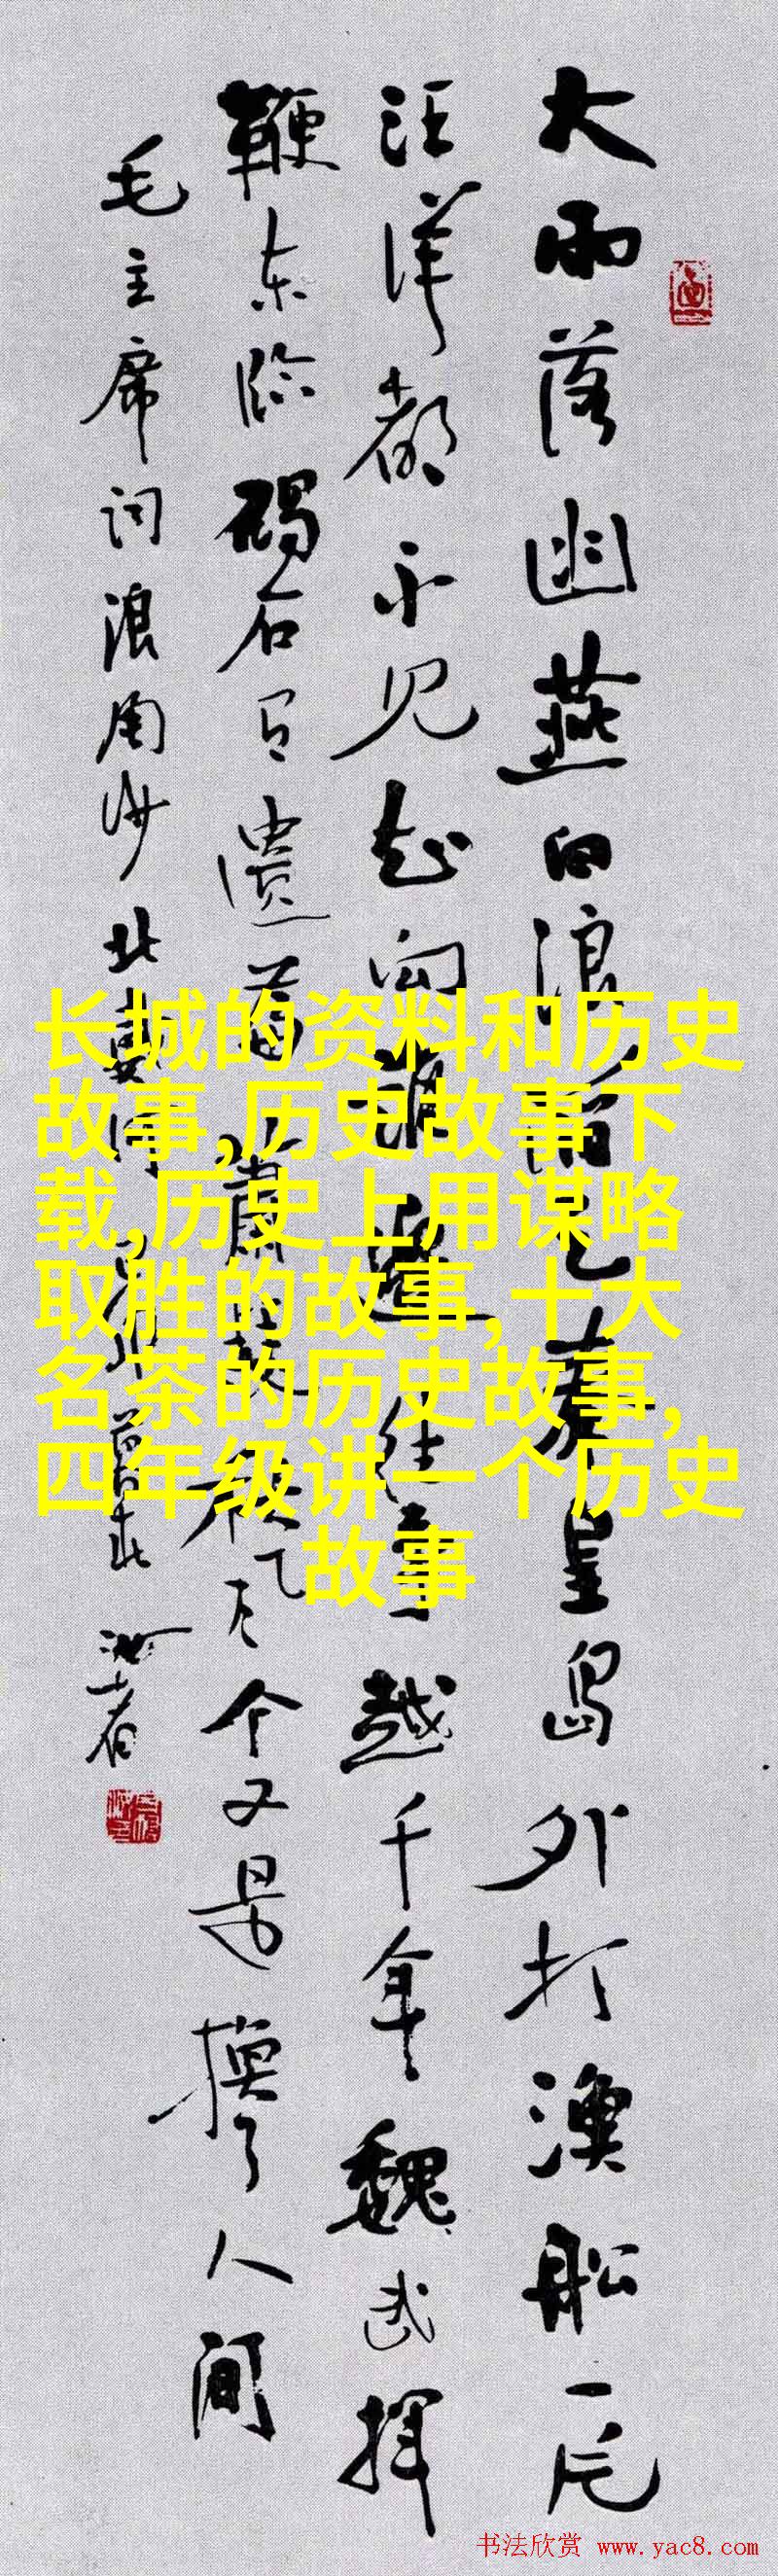 大雨落幽燕白浪滔天秦皇岛外打漁船一片
汪洋都不见知向谁边往事越千年魏武揮
鞭东临碣石有遗篇萧瑟秋风今又是换了人間
毛主席词浪淘沙北戴河
长城的资料和历史
故事,历史故事下
载,历史上用谋略
取胜的故事,十大
名茶的历史故事,
四年级讲一个历史
故事
书法欣赏 www.yac8.com